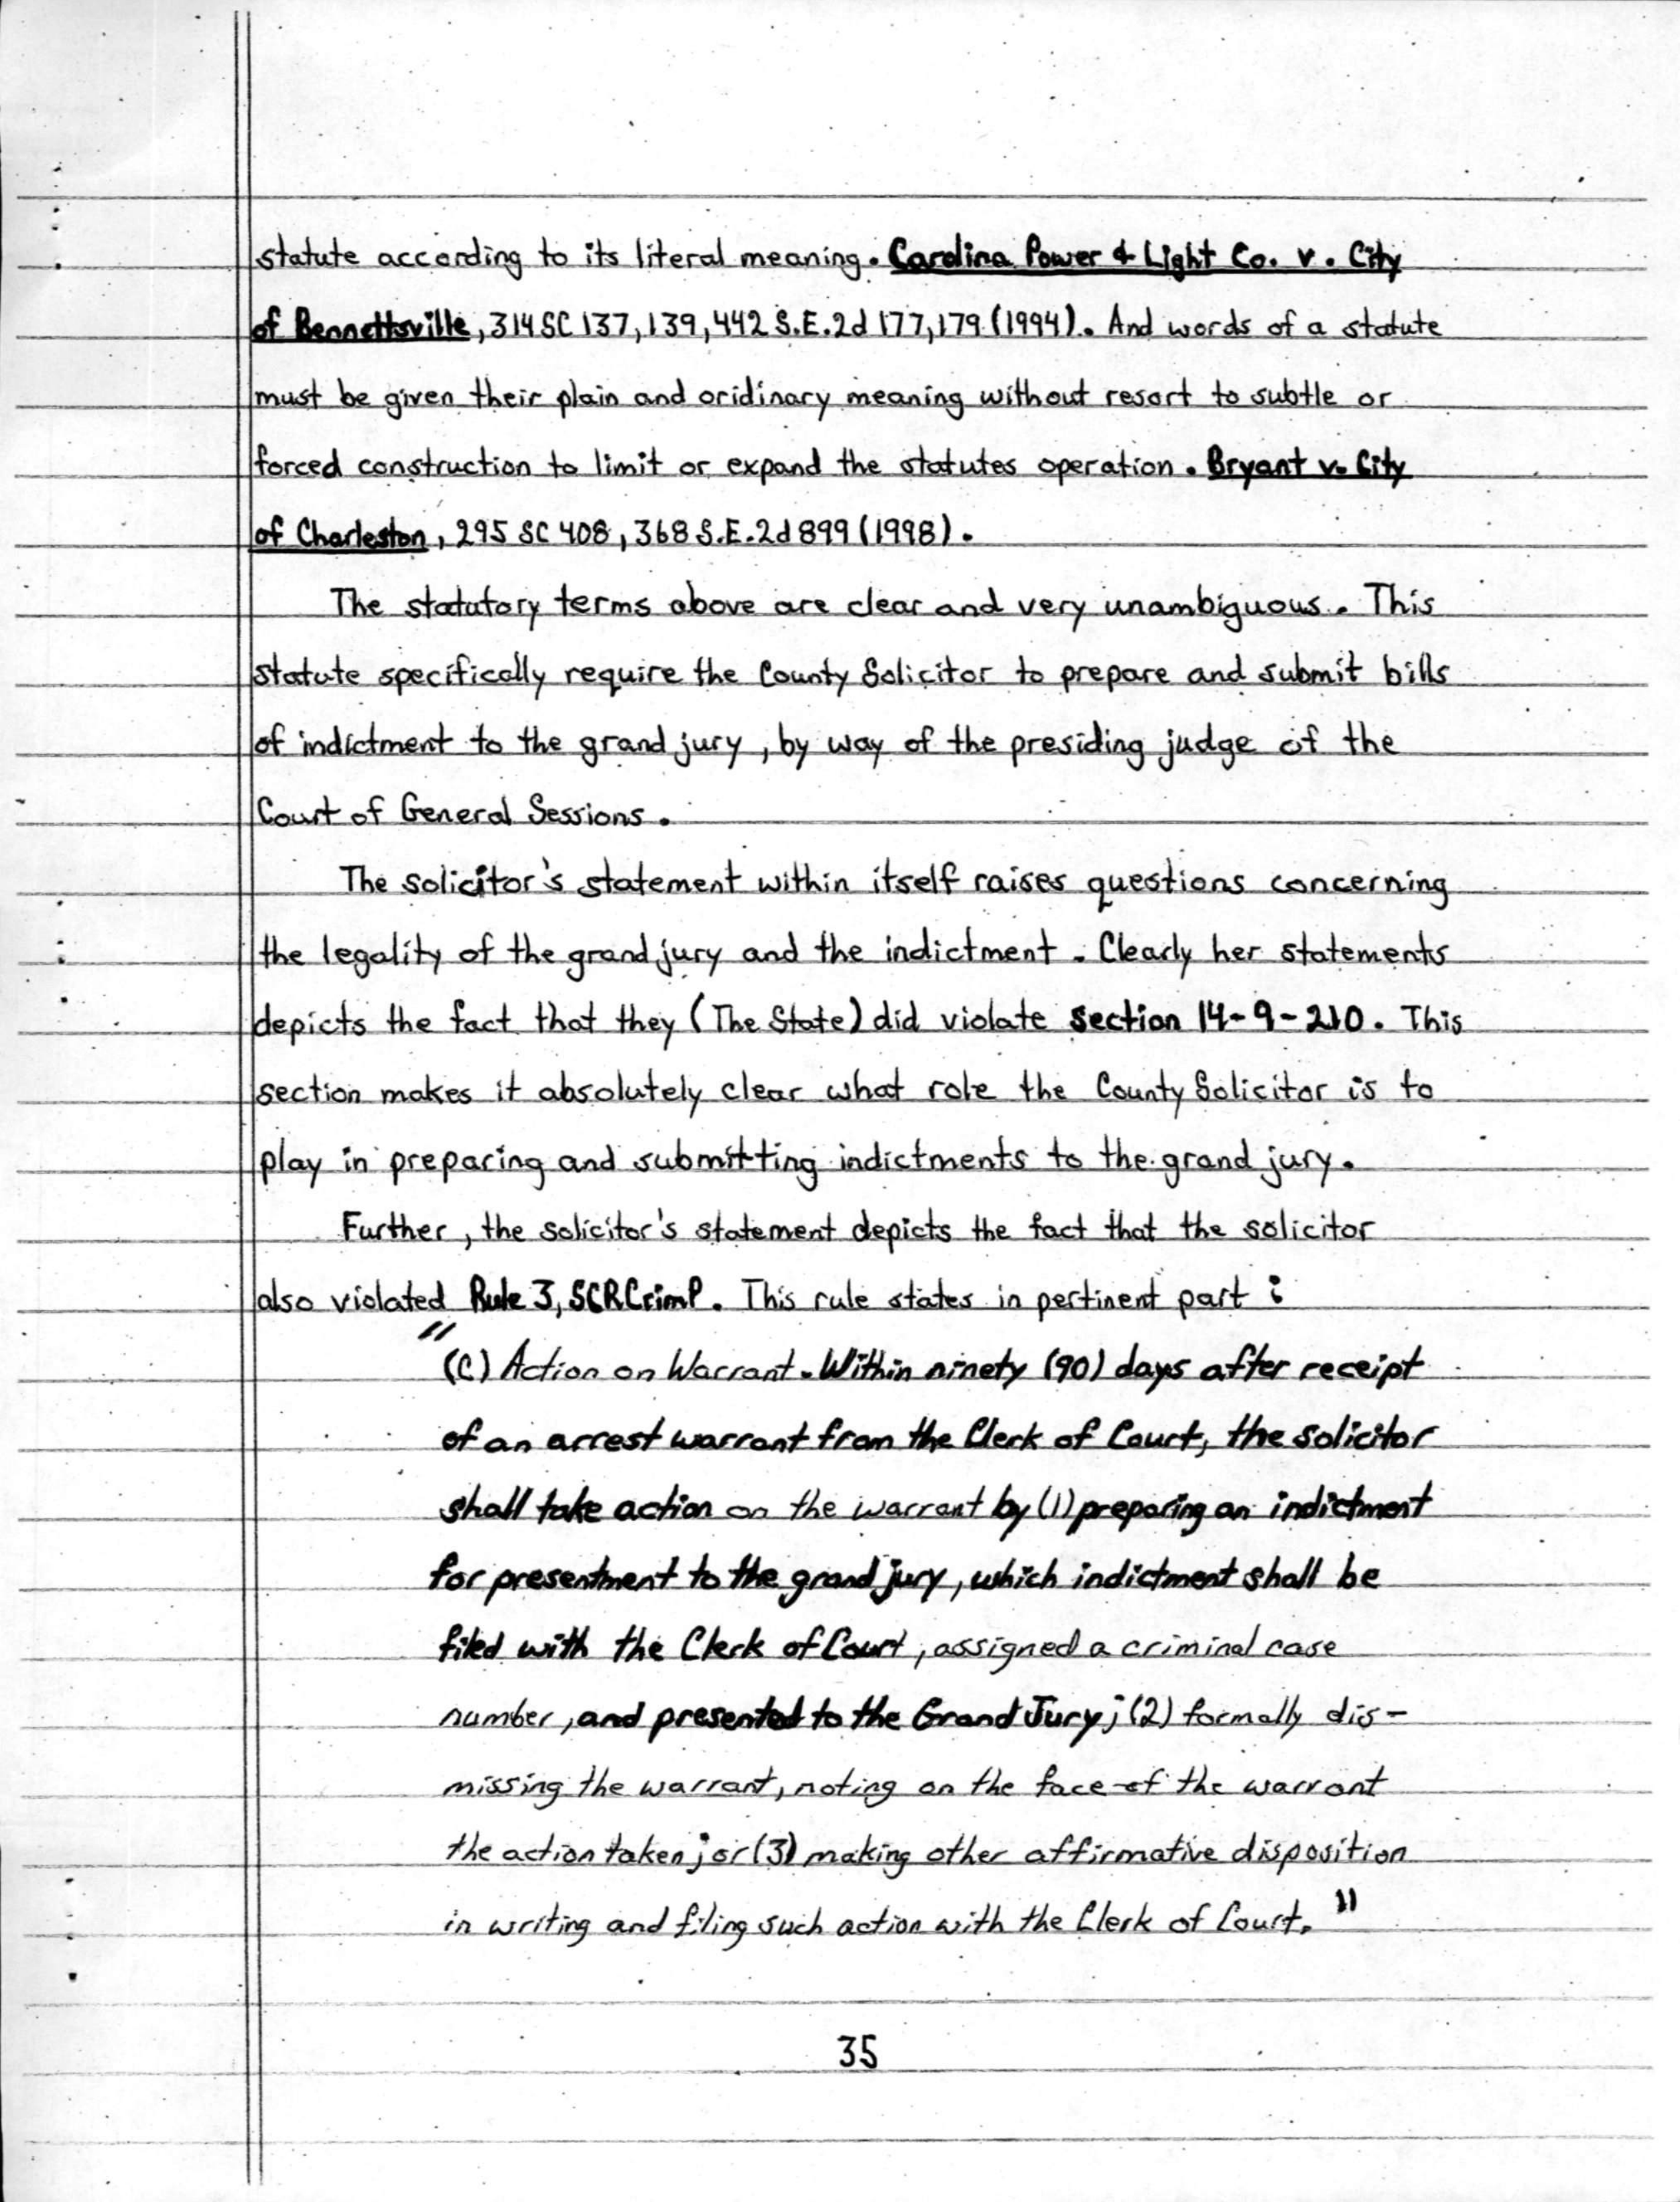 statute according to its literal meaning. Carolina Power & Light Co. v. City
of Bennettsville, 314 SC 137, 139, 442 S.E.2d 177, 179 (1994). And words of a statute
must be given their plain and oridinary meaning without resort to subtle or
forced construction to limit or expand the statutes operation. Bryant v. City
of Charleston, 295 SC 408, 368 S.E.2d 899 (1998).
The statutory terms above are clear and very unambiguous. This
statute specifically require the County Solicitor to prepare and submit bills
of indictment to the grand jury, by way of the presiding judge of the
Court of General Sessions.
The solicitor's statement within itself raises questions concerning
the legality of the grand jury and the indictment. Clearly her statements
depicts the fact that they (The State) did violate section 14-9-210. This
section makes it absolutely clear what role the County Solicitor is to
play in preparing and submitting indictments to the grand jury.
Further, the solicitor's statement depicts the fact that the solicitor
also violated Rule 3, SCRCrimP. This rule states in pertinent part:
"(C) Action on Warrant. Within ninety (90) days after receipt
of an arrest warrant from the Clerk of Court, the solicitor
shall take action on the warrant by (1) preparing an indictment
for presentment to the grand jury, which indictment shall be
filed with the Clerk of Court, assigned a criminal case
number, and presented to the Grand Jury; (2) formally dis-
missing the warrant, noting on the face of the warrant
the action taken; or (3) making other affirmative disposition
in writing and filing such action with the Clerk of Court."
35